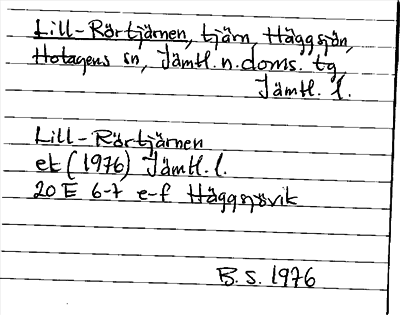 Lill-Rörtjärnen, tjärn, Häggsjön,
Hotagens sn, Jämtl. n. doms. tg
Jämtl. l.
Lill-Rörtjärnen
ek (1976) Jämtl. l.
20 E 6-7 e-f Häggsjövik
B. S. 1976